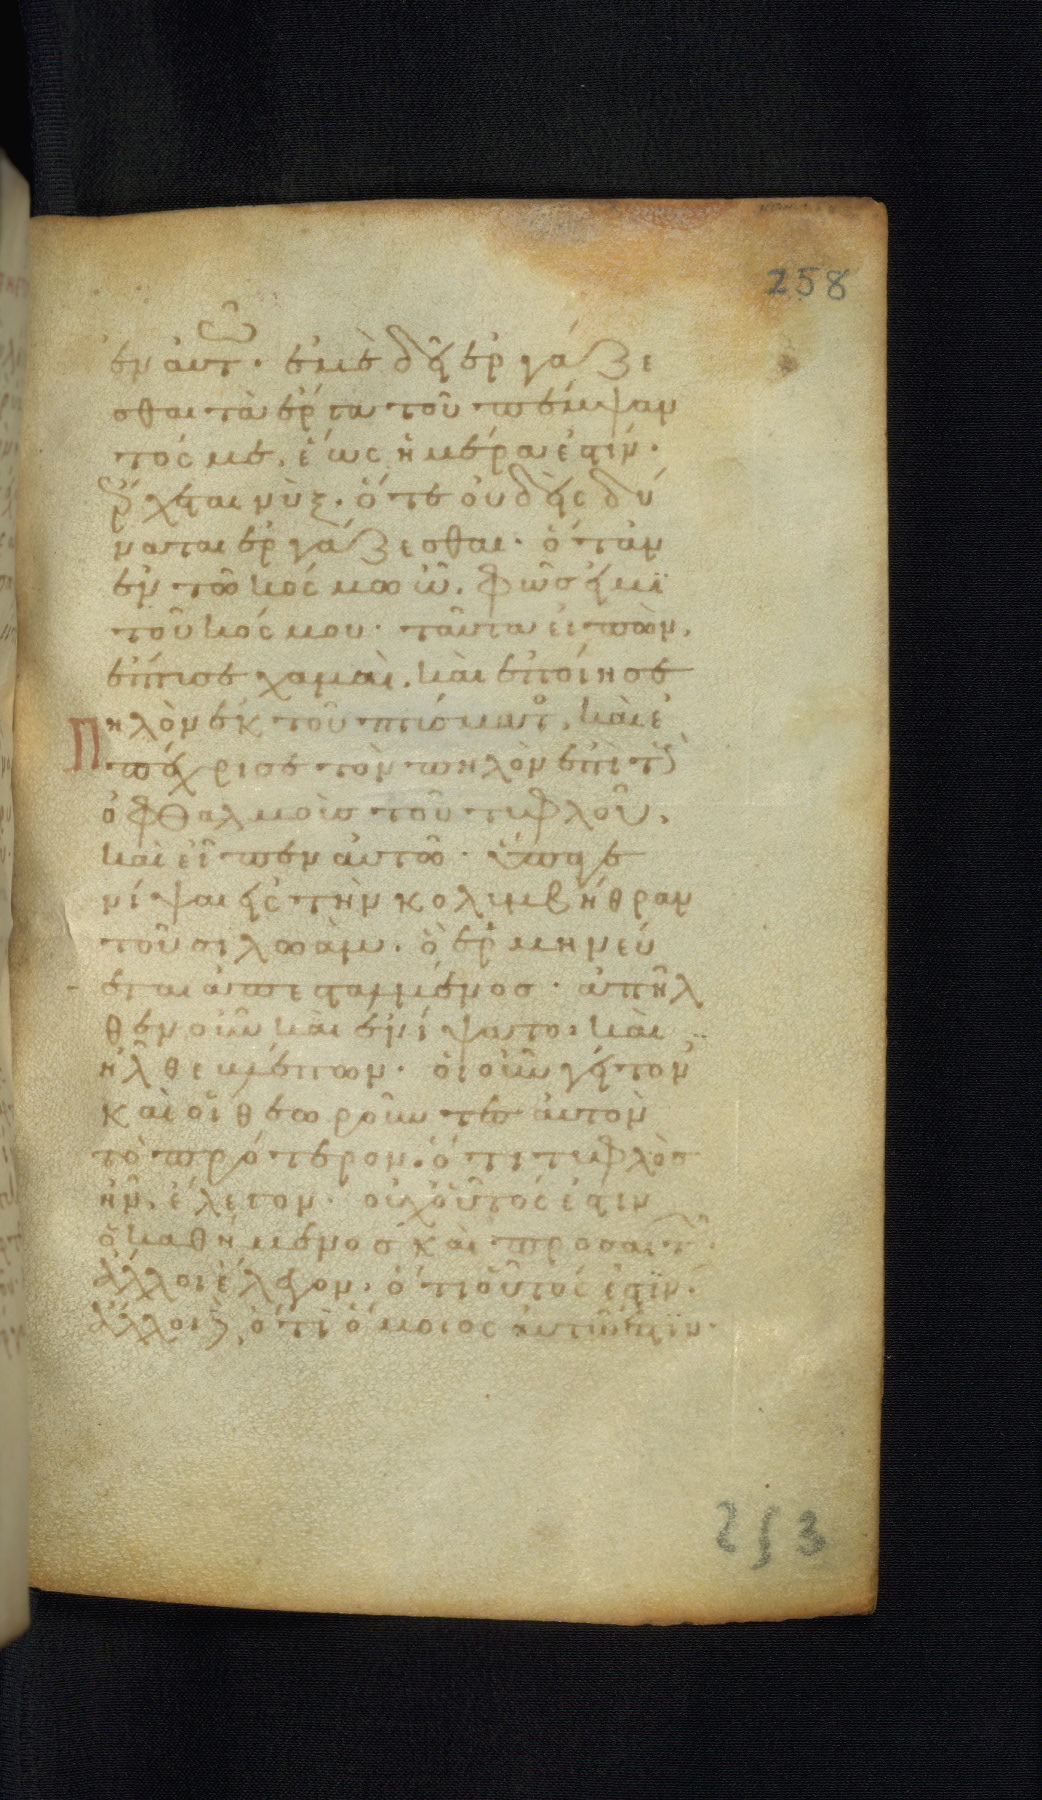 258
ἐν αυτῶ· ἐμὲ δεῖ ἐργάζε
σθαι τὰ ἔργα τοῦ πέμψαν
τός με, ἕως ἡμέρα ἐστίν·
ἔρχεται νὺξ· ὅτε οὐδεὶς δύ
ναται ἐργάζεσθαι· ὅταν
ἐν τῶ κόσμω ὦ, φῶς εἰμϊ
τοῦ κόσμου· ταῦτα εἰπὼν,
ἔπτισε χαμαὶ, καὶ ἐποίησε
πηλὸν ἐκ τοῦ πτύσματο, καὶ ἐ
πέχρισε τὸν πηλὸν ἐπὶ τοὺς
ὀφθαλμοὺς τοῦ τυφλοῦ,
καὶ εἶπεν ἀυτῶ· ὕπαγε
νίψαι εἰς τὴν κολυμβήθραν
τοῦ σιλωὰμ· ὃ ἑρμηνεύ
εται ἀπεσταλμένος· ἀπῆλ
θεν οὖν καὶ ἐνίψατο· καὶ
ἦλθε βλέπων· ὁι οὖν γείτον
καὶ οἱ θεωροῦντες ἀυτὸν
τὸ πρότερον· ὅτι τυφλὸς
ἦν, ἔλεγον· οὐχ οὗτός ἐστιν
ὁ καθήμενος καὶ προσαιτ
ἄλλοι ἔλεγον· ὅτι οὗτός ἐστϊν·
ἄλλοι δὲ, ὅτι ὅμοιος ἀυτῶ ἐστϊν·
253